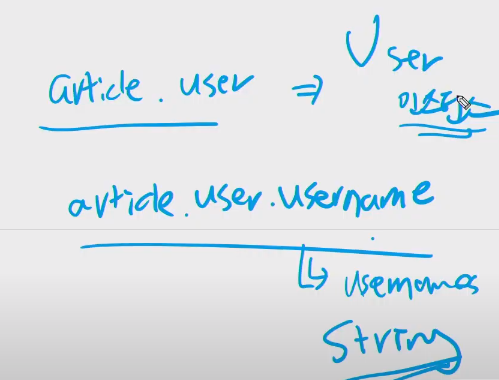 article.user ⇒ User
article.user.username
↳
String